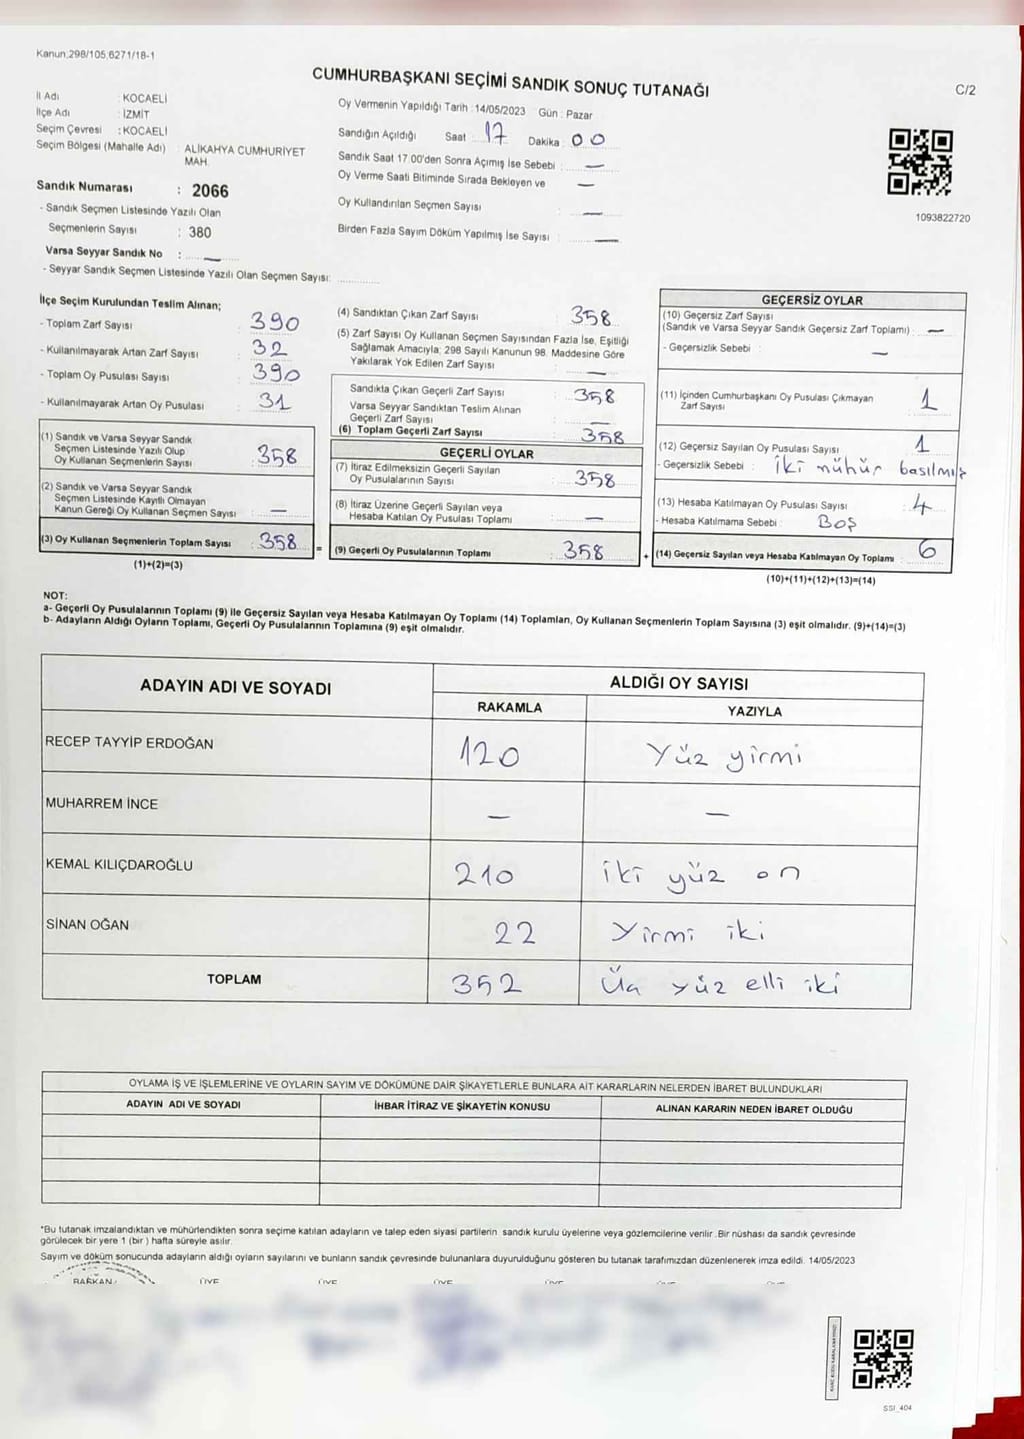 Kanun;298/105,6271/18-1
CUMHURBAŞKANI SEÇİMİ SANDIK SONUÇ TUTANAĞI
C/2
İl Adı : KOCAELİ
İlçe Adı : İZMİT
Seçim Çevresi : KOCAELİ
Seçim Bölgesi (Mahalle Adı) : ALİKAHYA CUMHURİYET
MAH.
Sandık Numarası : 2066
- Sandık Seçmen Listesinde Yazılı Olan
Seçmenlerin Sayısı : 380
Varsa Seyyar Sandık No : —
- Seyyar Sandık Seçmen Listesinde Yazılı Olan Seçmen Sayısı:
Oy Vermenin Yapıldığı Tarih : 14/05/2023 Gün : Pazar
Sandığın Açıldığı Saat : 17 Dakika : 00
Sandık Saat 17.00'den Sonra Açımış İse Sebebi : —
Oy Verme Saati Bitiminde Sırada Bekleyen ve —
Oy Kullandırılan Seçmen Sayısı : —
Birden Fazla Sayım Döküm Yapılmış İse Sayısı : —
1093822720
İlçe Seçim Kurulundan Teslim Alınan;
- Toplam Zarf Sayısı : 390
- Kullanılmayarak Artan Zarf Sayısı : 32
- Toplam Oy Pusulası Sayısı : 390
- Kullanılmayarak Artan Oy Pusulası : 31
(1) Sandık ve Varsa Seyyar Sandık
Seçmen Listesinde Yazılı Olup
Oy Kullanan Seçmenlerin Sayısı : 358
(2) Sandık ve Varsa Seyyar Sandık
Seçmen Listesinde Kayıtlı Olmayan
Kanun Gereği Oy Kullanan Seçmen Sayısı : —
(3) Oy Kullanan Seçmenlerin Toplam Sayısı : 358 =
(1)+(2)=(3)
(4) Sandıktan Çıkan Zarf Sayısı : 358
(5) Zarf Sayısı Oy Kullanan Seçmen Sayısından Fazla İse, Eşitliği
Sağlamak Amacıyla; 298 Sayılı Kanunun 98. Maddesine Göre
Yakılarak Yok Edilen Zarf Sayısı : —
Sandıkta Çıkan Geçerli Zarf Sayısı : 358
Varsa Seyyar Sandıktan Teslim Alınan
Geçerli Zarf Sayısı : —
(6) Toplam Geçerli Zarf Sayısı : 358
GEÇERLİ OYLAR
(7) İtiraz Edilmeksizin Geçerli Sayılan
Oy Pusulalarının Sayısı : 358
(8) İtiraz Üzerine Geçerli Sayılan veya
Hesaba Katılan Oy Pusulası Toplamı : —
(9) Geçerli Oy Pusulalarının Toplamı : 358 +
GEÇERSİZ OYLAR
(10) Geçersiz Zarf Sayısı
(Sandık ve Varsa Seyyar Sandık Geçersiz Zarf Toplamı) : —
- Geçersizlik Sebebi : —
(11) İçinden Cumhurbaşkanı Oy Pusulası Çıkmayan
Zarf Sayısı : 1
(12) Geçersiz Sayılan Oy Pusulası Sayısı : 1
- Geçersizlik Sebebi : iki mühür basılmış
(13) Hesaba Katılmayan Oy Pusulası Sayısı : 4
- Hesaba Katılmama Sebebi : Boş
(14) Geçersiz Sayılan veya Hesaba Katılmayan Oy Toplamı : 6
(10)+(11)+(12)+(13)=(14)
NOT:
a- Geçerli Oy Pusulalarının Toplamı (9) ile Geçersiz Sayılan veya Hesaba Katılmayan Oy Toplamı (14) Toplamları, Oy Kullanan Seçmenlerin Toplam Sayısına (3) eşit olmalıdır. (9)+(14)=(3)
b- Adayların Aldığı Oyların Toplamı, Geçerli Oy Pusulalarının Toplamına (9) eşit olmalıdır.
ADAYIN ADI VE SOYADI ALDIĞI OY SAYISI
RAKAMLA YAZIYLA
RECEP TAYYİP ERDOĞAN 120 Yüz yirmi
MUHARREM İNCE — —
KEMAL KILIÇDAROĞLU 210 iki yüz on
SİNAN OĞAN 22 Yirmi iki
TOPLAM 352 Üç yüz elli iki
OYLAMA İŞ VE İŞLEMLERİNE VE OYLARIN SAYIM VE DÖKÜMÜNE DAİR ŞİKAYETLERLE BUNLARA AİT KARARLARIN NELERDEN İBARET BULUNDUKLARI
ADAYIN ADI VE SOYADI İHBAR İTİRAZ VE ŞİKAYETİN KONUSU ALINAN KARARIN NEDEN İBARET OLDUĞU
*Bu tutanak imzalandıktan ve mühürlendikten sonra seçime katılan adayların ve talep eden siyasi partilerin sandık kurulu üyelerine veya gözlemcilerine verilir .Bir nüshası da sandık çevresinde
görülecek bir yere 1 (bir ) hafta süreyle asılır.
Sayım ve döküm sonucunda adayların aldığı oyların sayılarını ve bunların sandık çevresinde bulunanlara duyurulduğunu gösteren bu tutanak tarafımızdan düzenlenerek imza edildi. 14/05/2023
BAŞKAN ÜYE ÜYE ÜYE ÜYE
SSI_404